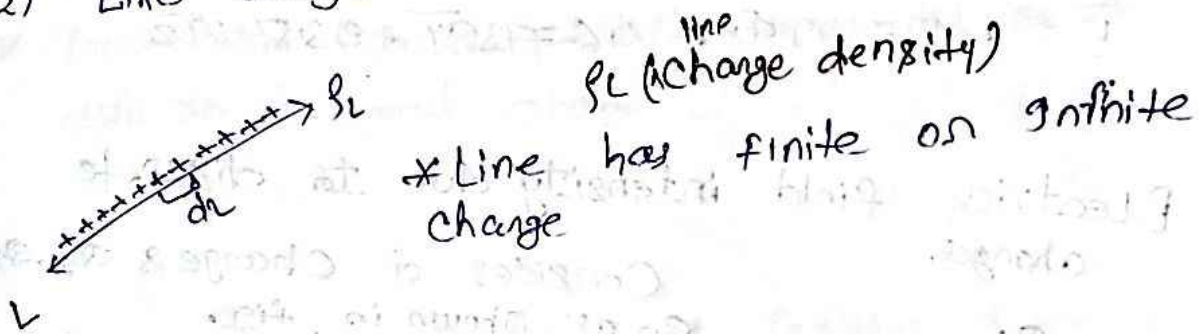 2) Line
line
ρL (^Charge density)
+ + + + + + + + + + + ρL
dL
* Line has finite or Infinite
Charge
L